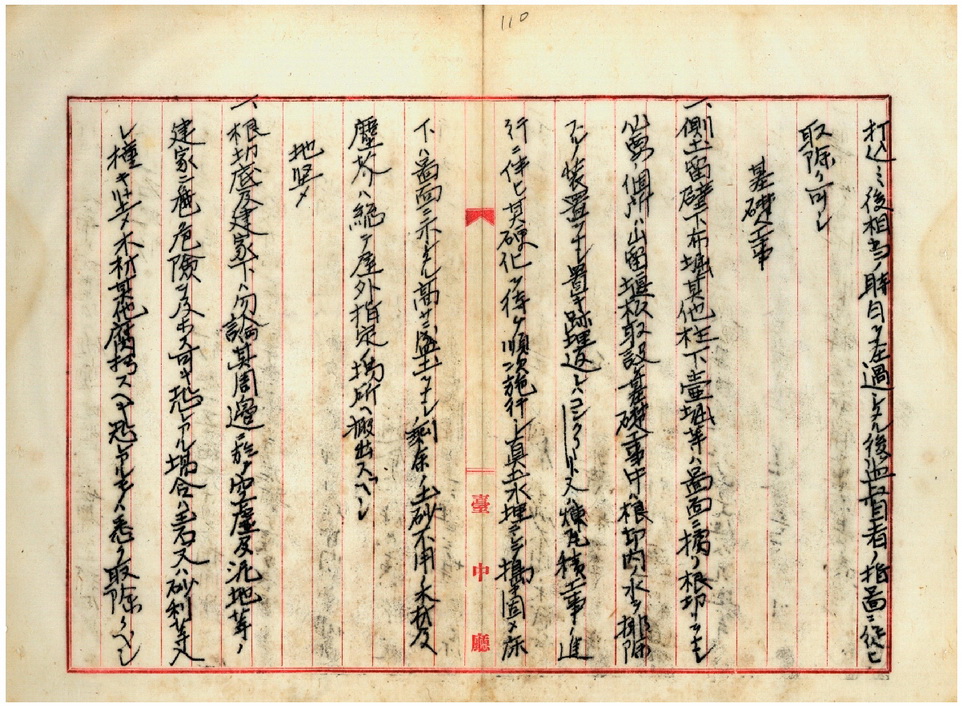 110
打込ミ後相当ノ時日ヲ経過シタル後監督者ノ指図ニ従ヒ
取除ク可シ
基礎工事
一、側土留壁下布堀其他柱下壷堀等ハ図面ニ拠リ根切ヲナシ
必要個所ハ山留堰板取設ケ基礎工事中ハ根切内ノ水ヲ排除
スル装置ヲナシ置キ跡埋返シハコンクリート又ハ煉瓦積工事ノ進
行ニ伴ヒ其硬化ヲ待チ順次施行シ真土水埋ニシテ搗固メ床
下ハ図面ニ示シタル高サニ盛土ヲナシ剰余ノ土砂不用ノ木材及
塵芥ハ総テ屋外指定ノ場所ヘ搬出スベシ
地堅メ
一、根切底及建家下ハ勿論其周辺ニ於テ空虚及泥地等ノ
建家ニ危険ヲ及ホス可キ恐レアル場合ハ岩又ハ砂利等入
レ搗キ堅メ木材其他腐朽スヘキ恐アルモノハ悉ク取除クヘシ
臺中廳